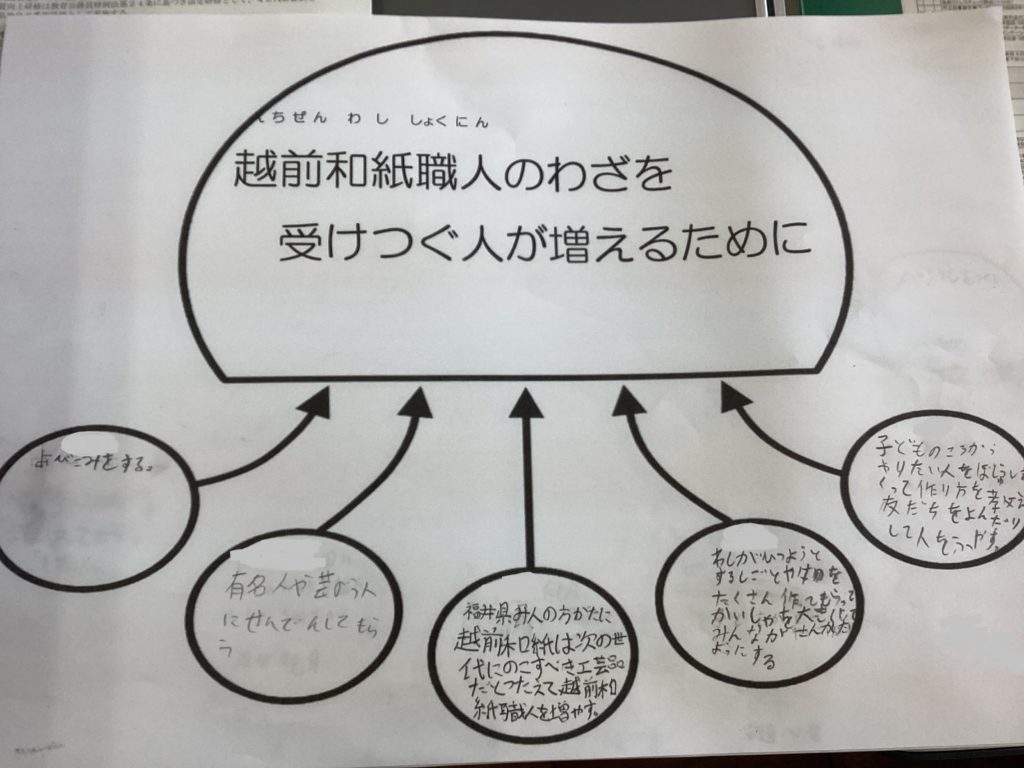 ちぜん わし しょくにん
越前和紙職人のわざを
受けつぐ人が増えるために
よびこみをする。
有名人や芸のう人
にせんでんしてもら
う
福井県みんのかたがたに
越前和紙は次の世
代にのこすべき工芸品
だとつたえて、越前和
紙職人を増やす。
わしがひつようと
するしごとや
たくさん 作ってもらって
かいしゃを大きくして
みんなが
ようにする
子どものころから
やりたい人を
って作り方を
友だちをよんだり
して人をふやす。